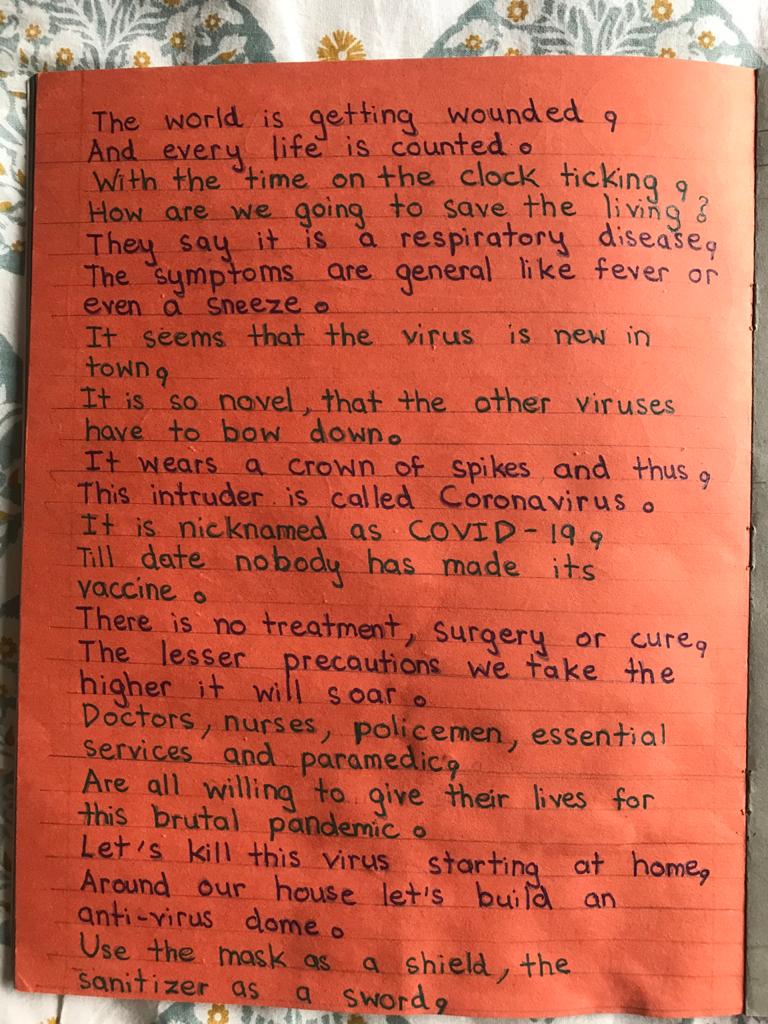 The world is getting wounded,
And every life is counted.
With the time on the clock ticking,
How are we going to save the living?
They say it is a respiratory disease,
The symptoms are general like fever or
even a sneeze.
It seems that the virus is new in
town,
It is so novel, that the other viruses
have to bow down.
It wears a crown of spikes and thus,
This intruder is called Coronavirus.
It is nicknamed as COVID-19,
Till date nobody has made its
vaccine.
There is no treatment, surgery or cure,
The lesser precautions we take the
higher it will soar.
Doctors, nurses, policemen, essential
services and paramedic,
Are all willing to give their lives for
this brutal pandemic.
Let's kill this virus starting at home,
Around our house let's build an
anti-virus dome.
Use the mask as a shield, the
sanitizer as a sword,